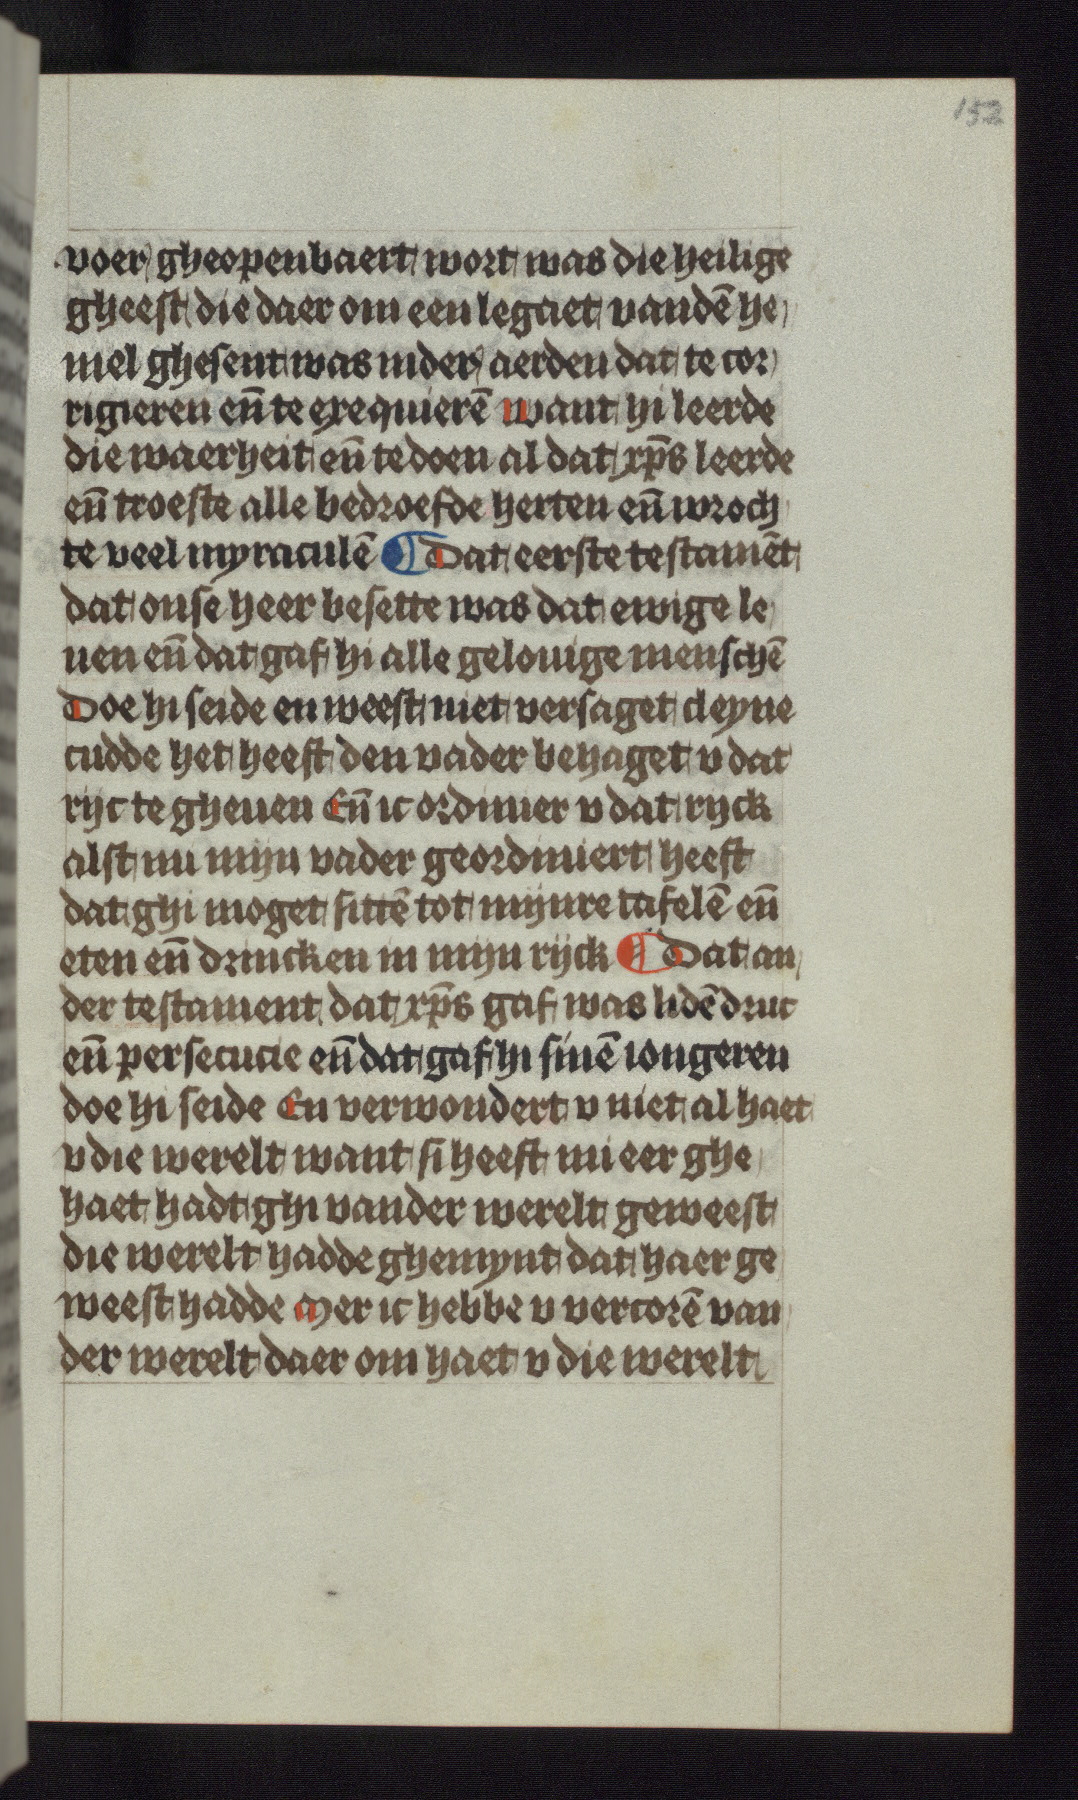 152
voer gheopenbaert wort was die heilige
gheest die daer om een legaet vandē he
mel ghesent was inder aerden dat te cor
rigieren eñ te exequierē Want hi leerde
die waerheit eñ te doen al dat xp̄s leerde
eñ troeste alle bedroefde herten eñ wroch
te veel myraculē ¶ Dat eerste testamēt
dat onse heer besette was dat ewige le
uen eñ dat gaf hi alle gelouige menschē
Doe hi seide en weest niet versaget cleyne
cudde het heeft den vader behaget v dat
rijc te gheuen Eñ ic ordinier v dat rijck
alst mi mijn vader geordiniert heeft
dat ghi moget sittē tot mijnre tafelē eñ
eten eñ drincken in mijn rijck ¶ Dat an
der testament dat xp̄s gaf was lidē druc
eñ persecucie eñ dat gaf hi sinē iongeren
doe hi seide En verwondert v niet al haet
v die werelt want si heeft mi eer ghe
haet hadt ghi vander werelt geweest
die werelt hadde ghemynt dat haer ge
weest hadde Mer ic hebbe v vercorē van
der werelt daer om haet v die werelt